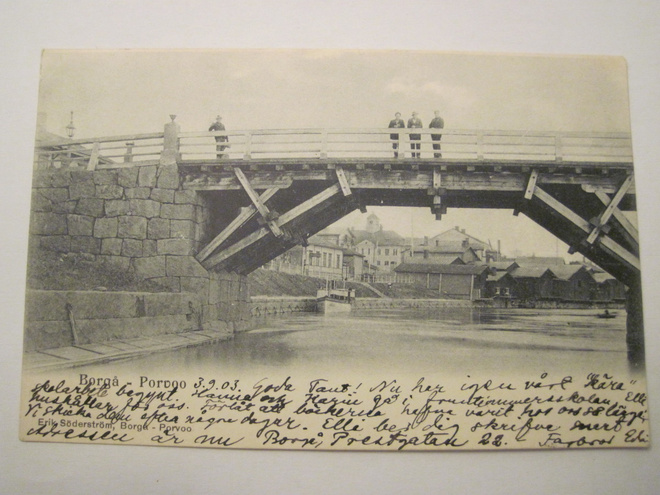 Borgå - Porvoo 3.9.03. Goda Tant! Nu har igen vårt "kära"
skolarbete begynt. Hanna och Karin gå i fruntimmersskolan, Elli
hushåller för oss. Förlåt att böckerna hafva varit hos oss så länge
Vi skicka dem efter några dagar. Elli ber dig skrifva snart
Erik Söderström, Borgå - Porvoo
Adressen är nu Borgå, Prestgatan 22.